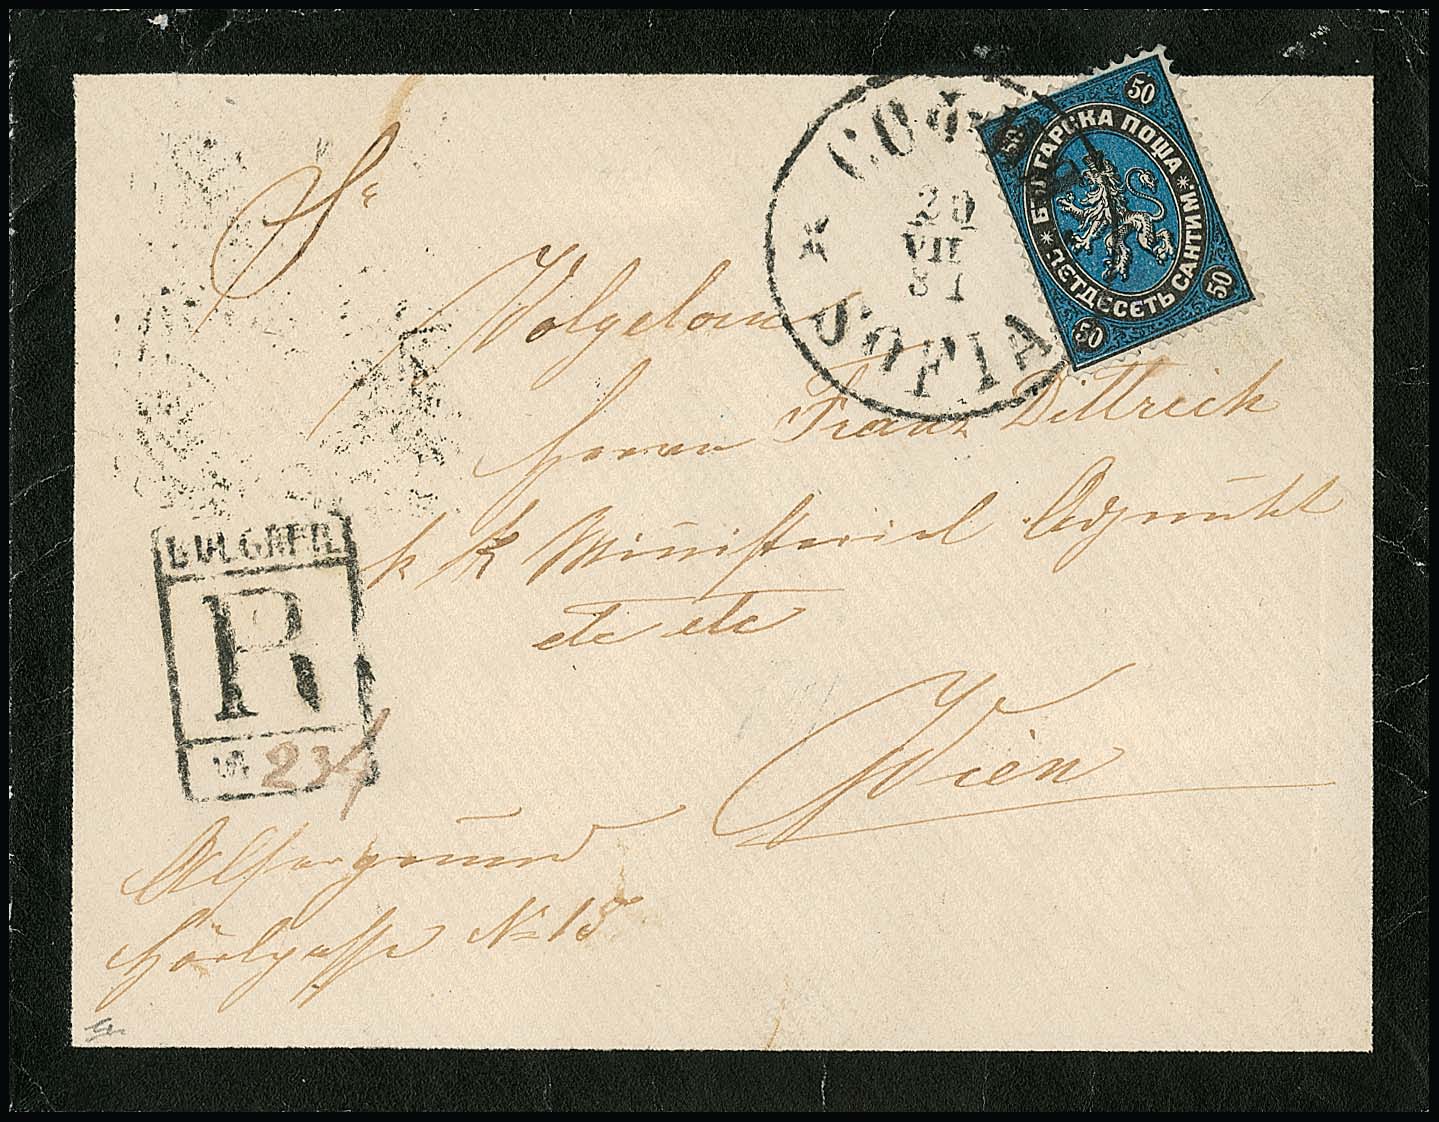 50
50
БЪЛГАРСКА ПОЩА
ПЕТДЕСЕТЬ САНТИМ.
50
50
СОФИЯ
20
VII
81
SOFIA
Sr
Wolgeboren
Herrn Franz Dittrich
k k Ministerial Adjunkt
etc etc
Wien
BULGARIE
R
№ 234
Alsergrund
Hörlgasse № 15